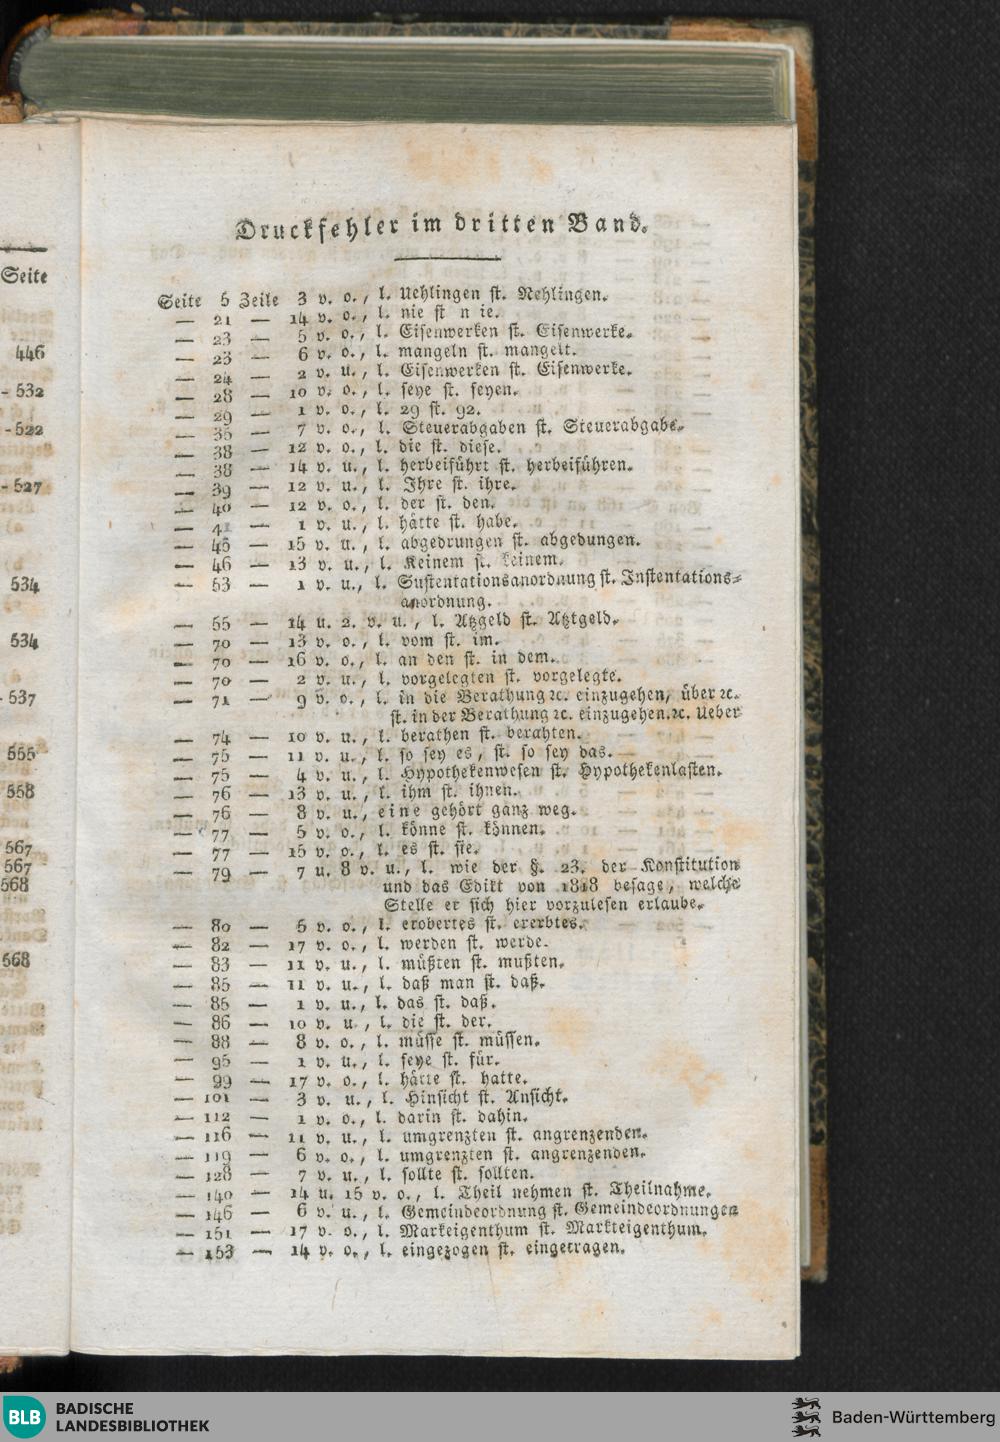 Seite
446
- 532
- 522
- 527
534
534
- 537
555
558
567
567
568
568
Druckfehler im dritten Band.
Seite 5 Zeile 3 v. o., l. Uehlingen st. Nehlingen.
— 21 — 14 v. o., l. nie st n ie.
— 23 — 5 v. o., l. Eisenwerken st. Eisenwerke.
— 23 — 6 v. o., l. mangeln st. mangelt.
— 24 — 2 v. u., l. Eisenwerken st. Eisenwerke.
— 28 — 10 v. o., l. seye st. seyen.
— 29 — 1 v. o., l. 29 st. 92.
— 35 — 7 v. o., l. Steuerabgaben st. Steuerabgabe.
— 38 — 12 v. o., l. die st. diese.
— 38 — 14 v. u., l. herbeiführt st. herbeiführen.
— 39 — 12 v. u., l. Ihre st. ihre.
— 40 — 12 v. o., l. der st. den.
— 41 — 1 v. u., l. hätte st. habe.
— 45 — 15 v. u., l. abgedrungen st. abgedungen.
— 46 — 13 v. u., l. Keinem st. keinem.
— 53 — 1 v. u., l. Sustentationsanordnung st. Instentations-
anordnung.
— 55 — 14 u. 2. v. u., l. Atzgeld st. Atztgeld.
— 70 — 13 v. o., l. vom st. im.
— 70 — 16 v. o., l. an den st. in dem.
— 70 — 2 v. u., l. vorgelegten st. vorgelegte.
— 71 — 9 v. o., l. in die Berathung ꝛc. einzugehen, über ꝛc.
st. in der Berathung ꝛc. einzugehen.ꝛc. Ueber
— 74 — 10 v. u., l. berathen st. berahten.
— 75 — 11 v. u., l. so sey es, st. so sey das.
— 75 — 4 v. u., l. Hypothekenwesen st. Hypothekenlasten.
— 76 — 13 v. u., l. ihm st. ihnen.
— 76 — 8 v. u., eine gehört ganz weg.
— 77 — 5 v. o., l. könne st. können.
— 77 — 15 v. o., l. es st. sie.
— 79 — 7 u. 8 v. u., l. wie der §. 23. der Konstitution
und das Edikt von 1818 besage, welche
Stelle er sich hier vorzulesen erlaube.
— 80 — 5 v. o., l. erobertes st. ererbtes.
— 82 — 17 v. o., l. werden st. werde.
— 83 — 11 v. u., l. müßten st. mußten.
— 85 — 11 v. u., l. daß man st. daß.
— 85 — 1 v. u., l. das st. daß.
— 86 — 10 v. u., l. die st. der.
— 88 — 8 v. o., l. müsse st. müssen.
— 95 — 1 v. u., l. seye st. für.
— 99 — 17 v. o., l. hätte st. hatte.
— 101 — 3 v. u., l. Hinsicht st. Ansicht.
— 112 — 1 v. o., l. darin st. dahin.
— 116 — 11 v. u., l. umgrenzten st. angrenzenden.
— 119 — 6 v. o., l. umgrenzten st. angrenzenden.
— 128 — 7 v. u., l. sollte st. sollten.
— 140 — 14 u. 15 v. o., l. Theil nehmen st. Theilnahme.
— 146 — 6 v. u., l. Gemeindeordnung st. Gemeindeordnungen
— 151 — 17 v. o., l. Markeigenthum st. Markteigenthum.
— 153 — 14 v. o., l. eingezogen st. eingetragen.
BLB BADISCHE
LANDESBIBLIOTHEK
Baden-Württemberg